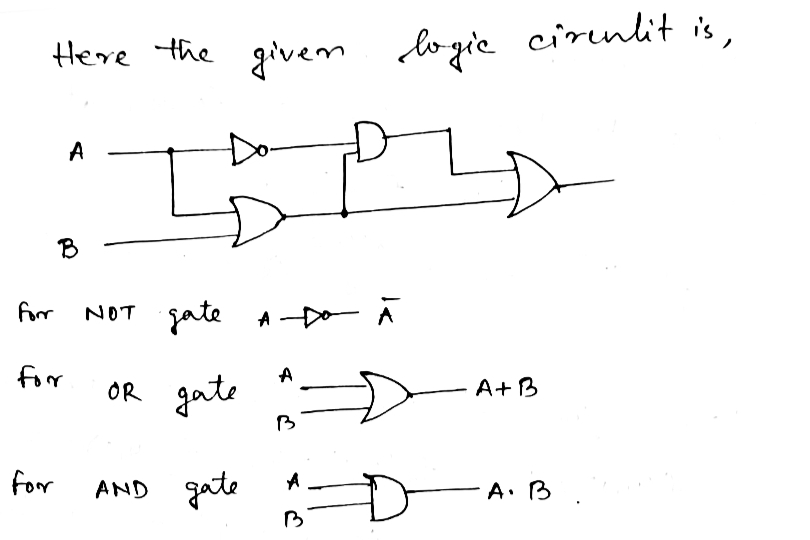 Here the given logic circulit is,
A
B
for NOT gate A Ā
for OR gate A A+B
B
for AND gate A A. B .
B